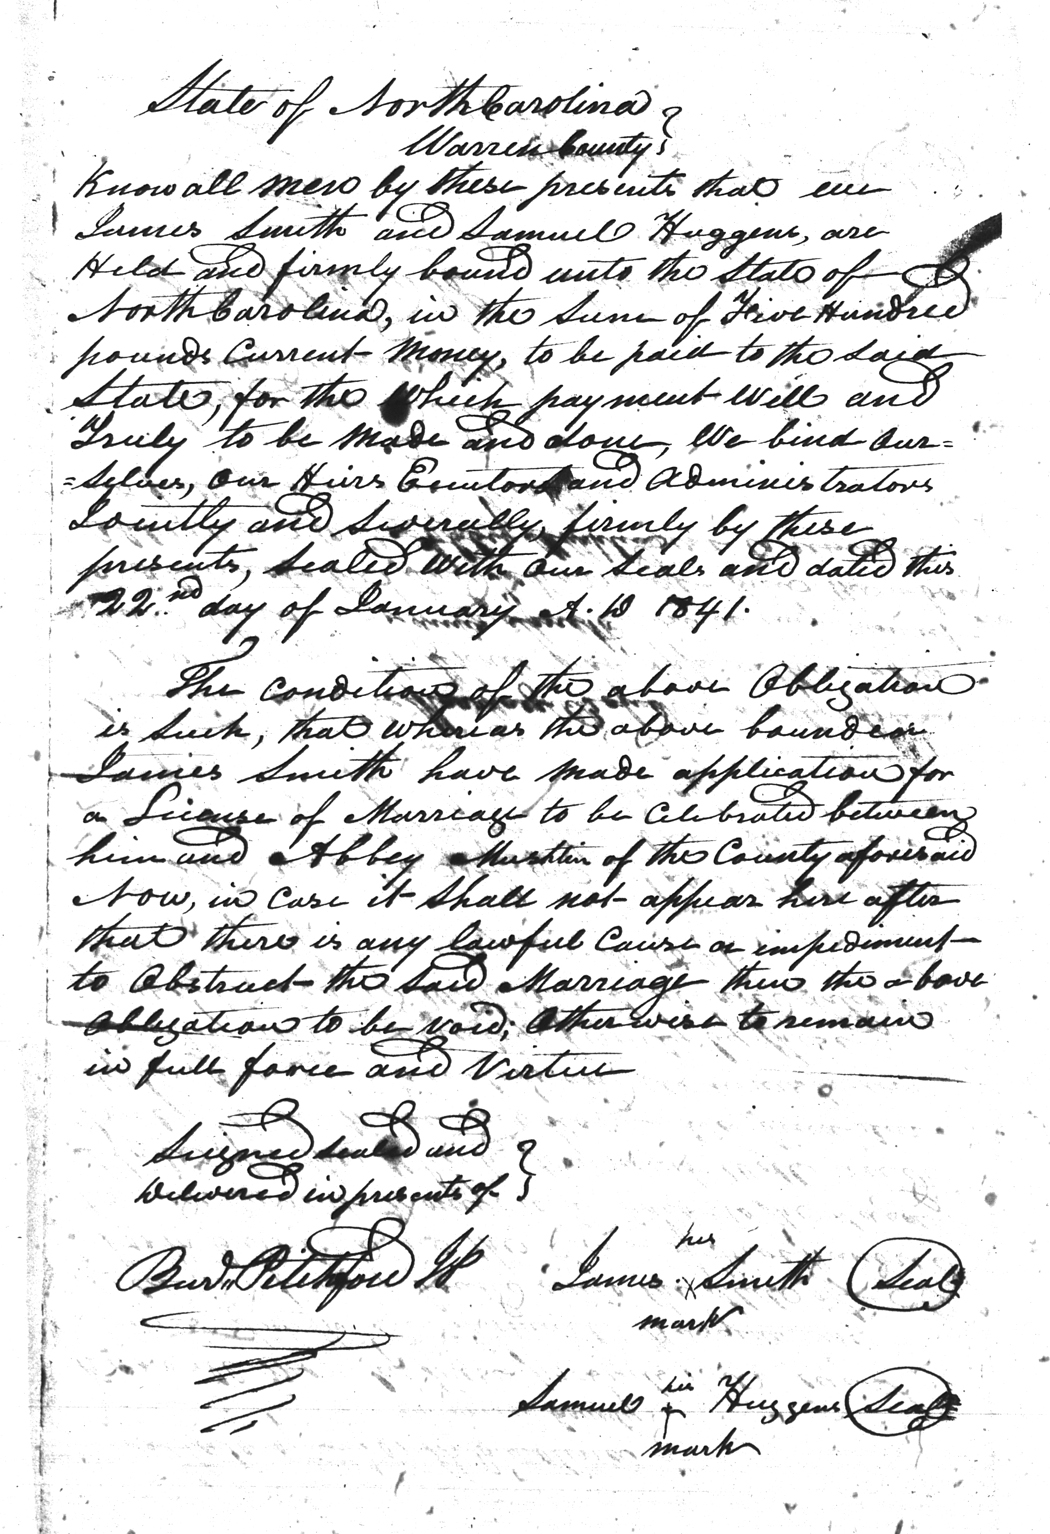 State of North Carolina }
Warren County }
Know all men by these presents that we
James Smith and Samuel Huggens, are
Held and firmly bound unto the State of
North Carolina, in the Sum of Five Hundred
pounds Current Money, to be paid to the said
State, for the Which payment Will and
Truly to be Made and done, We bind Our=
=Selves, Our Heirs Executors and Administrators
Jointly and Severally, firmly by these
presents, Sealed With Our Seals and dated this
22.nd day of January A. D 1841.
The Condition of the above Obligation
is Such, that Whereas the above bounden
James Smith have made application for
a License of Marriage to be Celebrated between
him and Abbey Mushlin of the County aforesaid
Now, in Case it Shall not appear here after
that there is any lawful Cause or impediment
to Obstruct the Said Marriage then the above
Obligation to be void; Otherwise to remain
in full force and Virtue
Signed Sealed and }
Delivered in presents of }
Burd. Pitchford JP
his
James X Smith Seal
mark
his
Samuel + Huggens Seal
mark